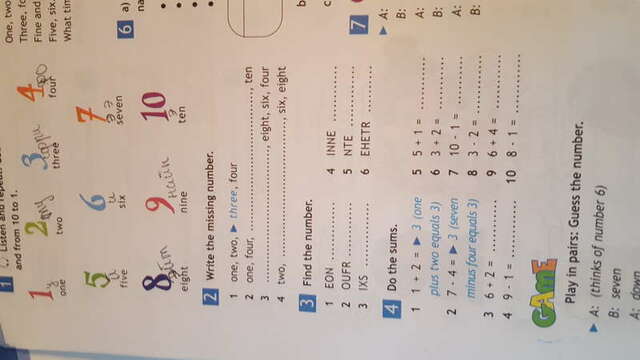 1 Listen and repeat.
and from 10 to 1.
1 2 3 4
one two three four
5 6 7
и и э э
five six seven
8 9 10
найн
eight nine ten
2 Write the missing number.
1 one, two, ▶ three, four
2 one, four, ............................, ten
3 ............................, eight, six, four
4 two, ............................, six, eight
3 Find the number.
1 EON ............
2 OUFR ............
3 IXS ............
4 INNE ............
5 NTE ............
6 EHETR ............
4 Do the sums.
1 1 + 2 = ▶ 3 (one
plus two equals 3)
2 7 - 4 = ▶ 3 (seven
minus four equals 3)
3 6 + 2 = ............
4 9 - 1 = ............
5 5 + 1 = ............
6 3 + 2 = ............
7 10 - 1 = ............
8 3 - 2 = ............
9 6 + 4 = ............
10 8 - 1 = ............
GAME
Play in pairs: Guess the number.
▶ A: (thinks of number 6)
B: seven
A: down
One, two
Three, fo
Fine and
Five, six,
What tim
6 a)
na
b
c
7
▶ A:
B:
A:
B:
A:
B: